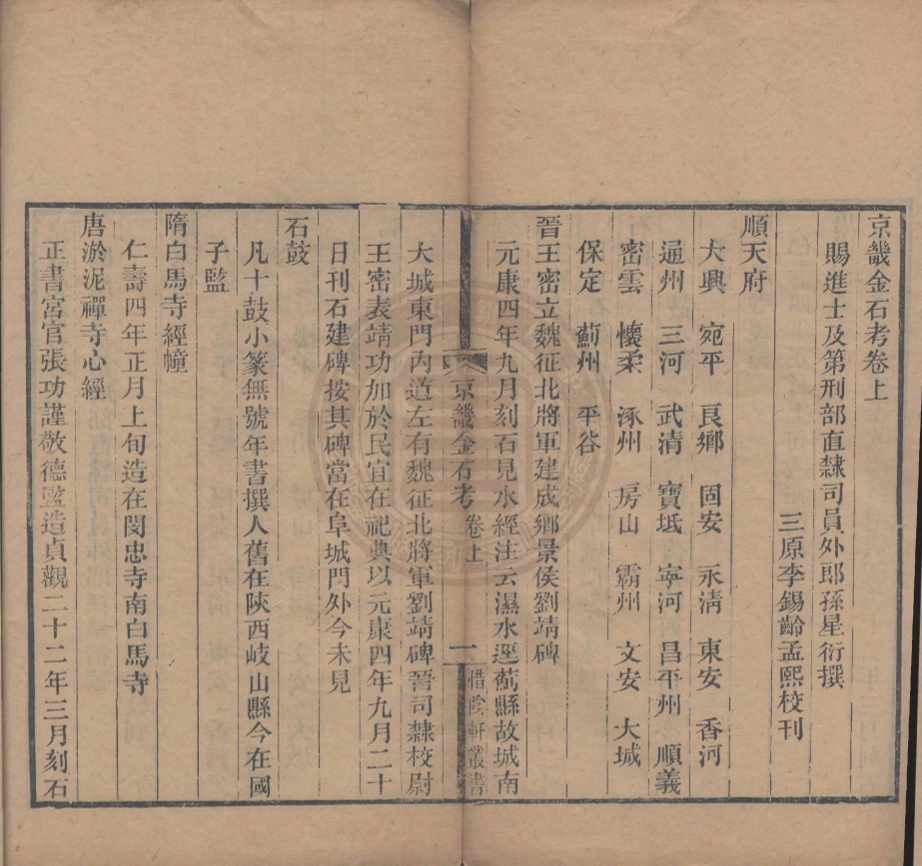 京畿金石考卷上
賜進士及第刑部直隸司員外郎孫星衍撰
三原李錫齡孟熙校刊
順天府
大興 宛平 良鄉 固安 永淸 東安 香河
通州 三河 武淸 寶坻 寧河 昌平州 順義
密雲 懷柔 涿州 房山 霸州 文安 大城
保定 薊州 平谷
晉王密立魏征北將軍建成鄉景侯劉靖碑
元康四年九月刻石見水經注云濕水逕薊縣故城南
京畿金石考 卷上 一 惜陰軒叢書
大城東門內道左有魏征北將軍劉靖碑晉司隸校尉
王密表靖功加於民宜在祀典以元康四年九月二十
日刊石建碑按其碑當在阜城門外今未見
石鼓
凡十鼓小篆無號年書撰人舊在陝西岐山縣今在國
子監
隋白馬寺經幢
仁壽四年正月上旬造在閔忠寺南白馬寺
唐淤泥禪寺心經
正書宮官張功謹敬德監造貞觀二十二年三月刻石